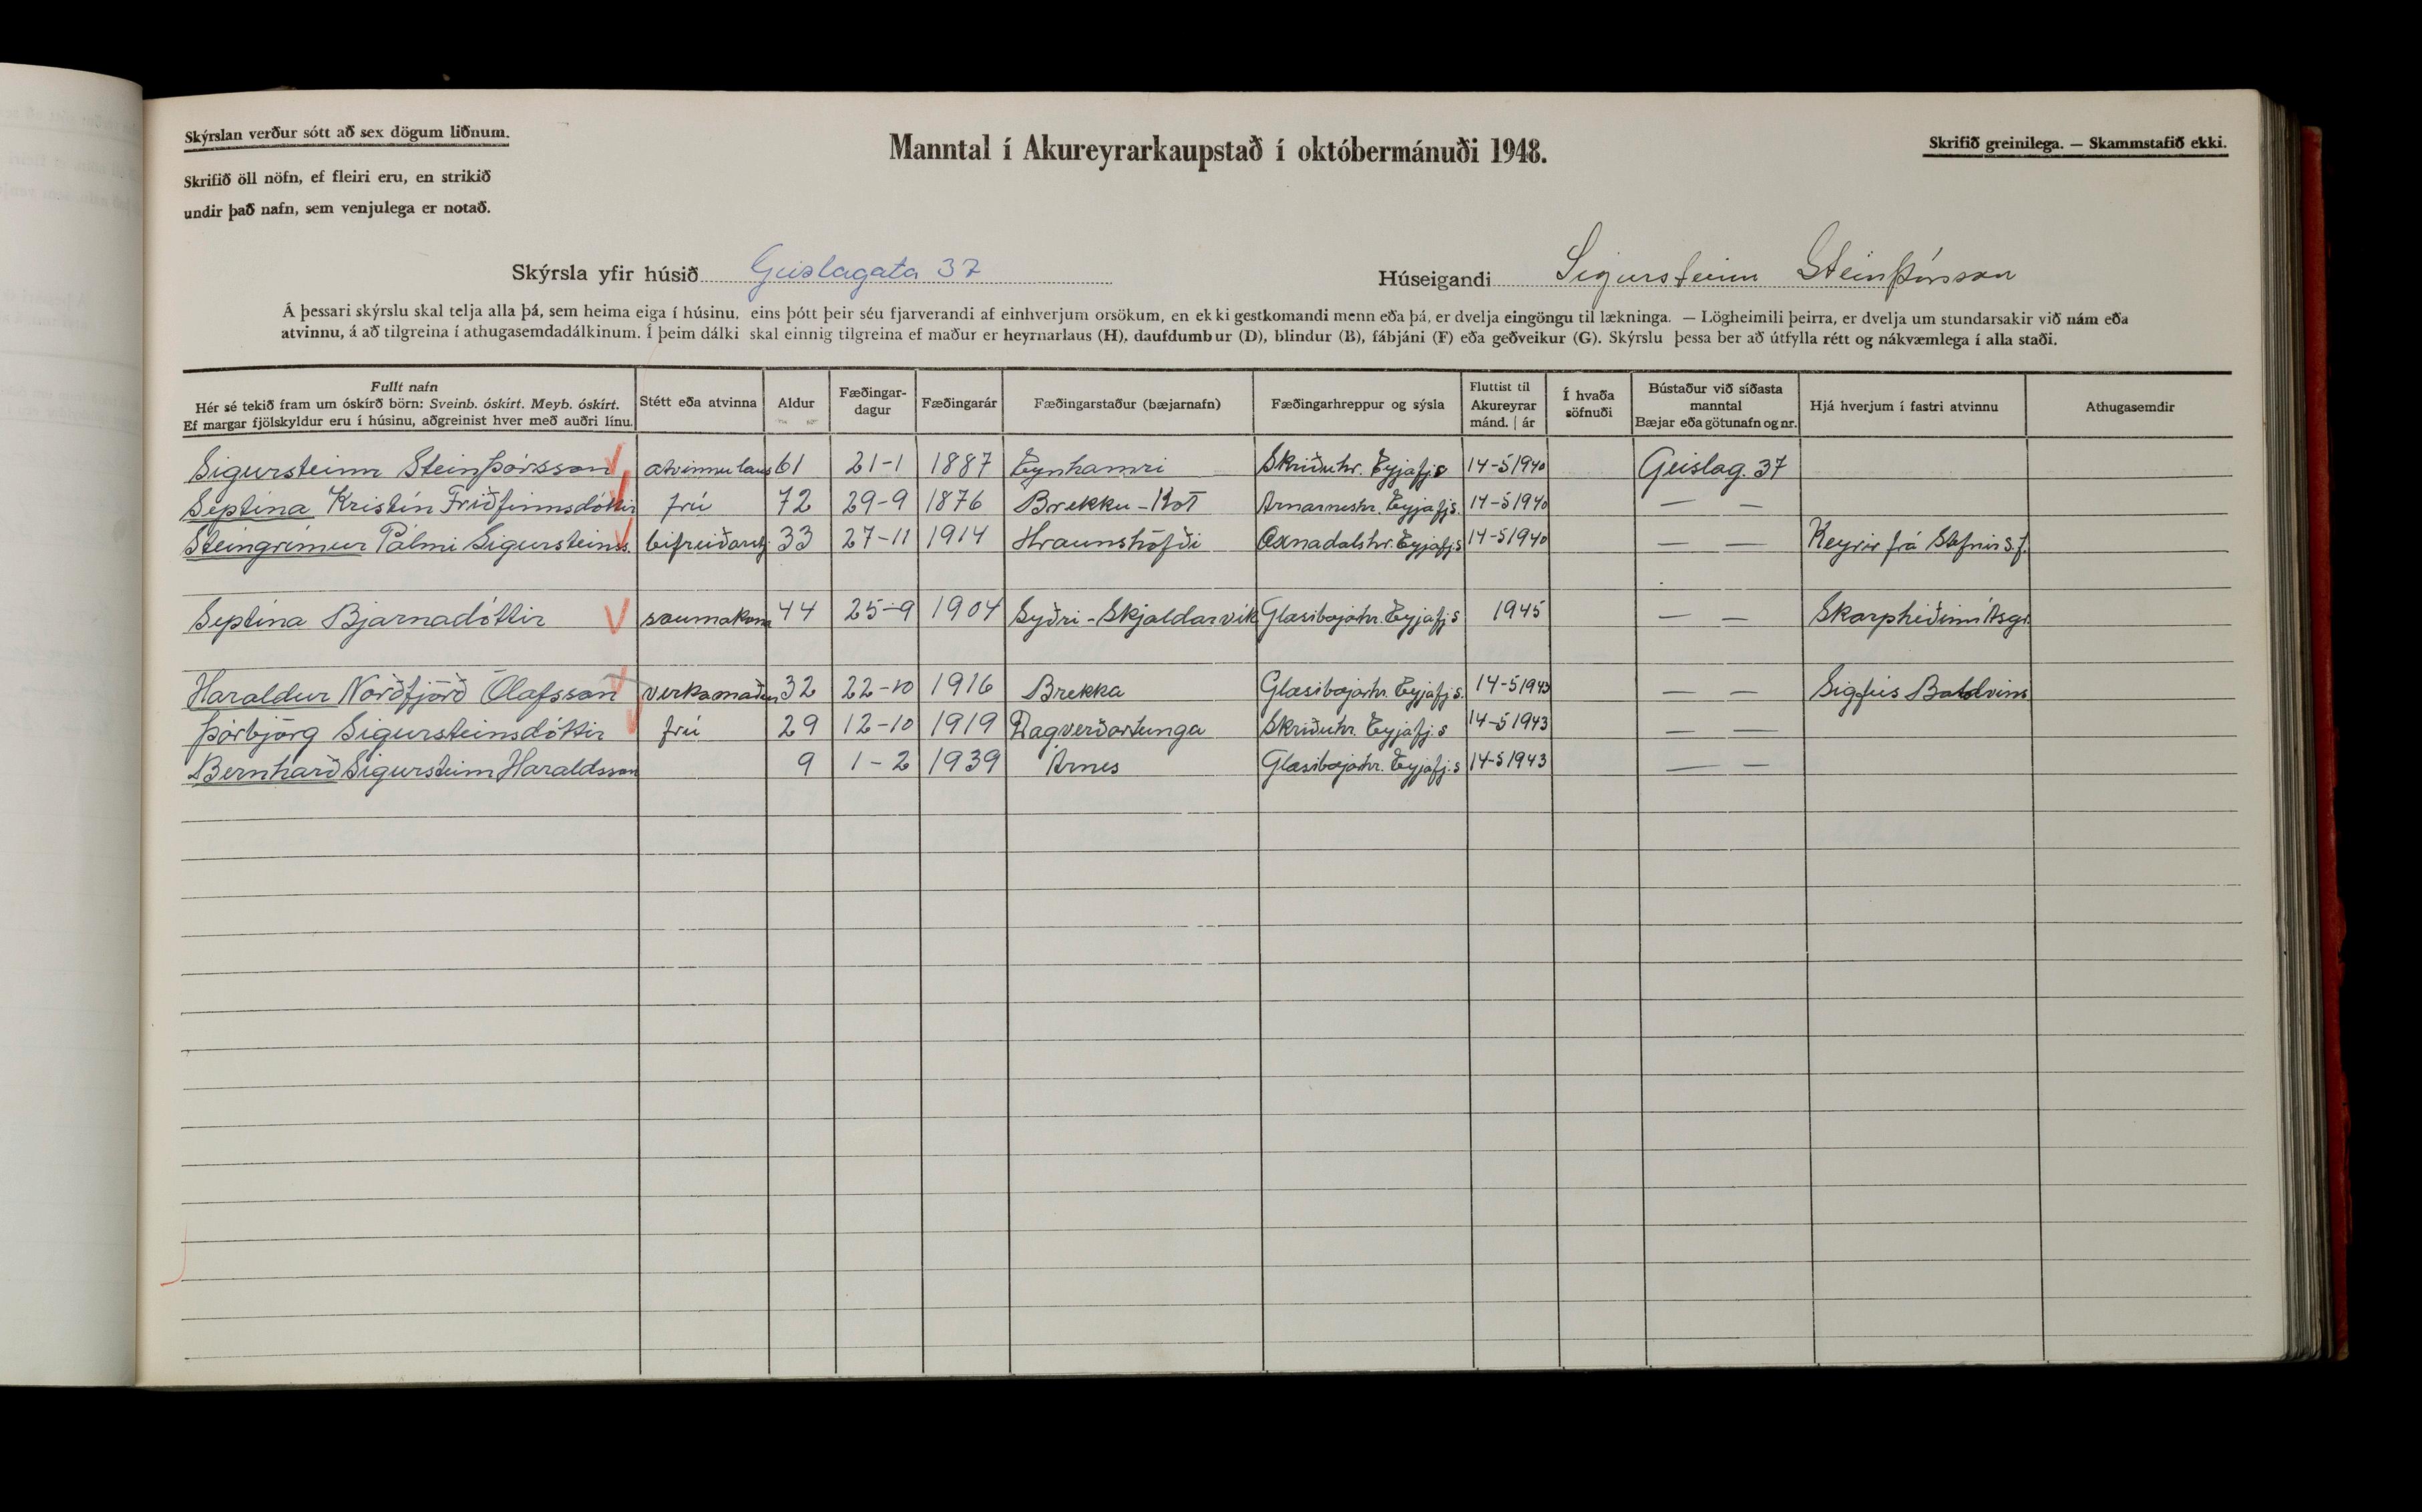 Skýrslan verður sótt að sex dögum liðnum.
Skrifið öll nöfn, ef fleiri eru, en strikið
undir það nafn, sem venjulega er notað.
Manntal í Akureyrarkaupstað í októbermánuði 1948.
Skrifið greinilega. — Skammstafið ekki.
Skýrsla yfir húsið Geislagata 37
Húseigandi Sigursteinn Steinþórsson
Á þessari skýrslu skal telja alla þá, sem heima eiga í húsinu, eins þótt þeir séu fjarverandi af einhverjum orsökum, en ekki gestkomandi menn eða þá, er dvelja eingöngu til lækninga. — Lögheimili þeirra, er dvelja um stundarsakir við nám eða
atvinnu, á að tilgreina í athugasemdadálkinum. Í þeim dálki skal einnig tilgreina ef maður er heyrnarlaus (H), daufdumbur (D), blindur (B), fábjáni (F) eða geðveikur (G). Skýrslu þessa ber að útfylla rétt og nákvæmlega í alla staði.
Fullt nafn
Hér sé tekið fram um óskírð börn: Sveinb. óskírt. Meyb. óskírt.
Ef margar fjölskyldur eru í húsinu, aðgreinist hver með auðri línu.
Stétt eða atvinna
Aldur
Fæðingar-
dagur
Fæðingarár
Fæðingarstaður (bæjarnafn)
Fæðingarhreppur og sýsla
Fluttist til
Akureyrar
mánd. | ár
Í hvaða
söfnuði
Bústaður við síðasta
manntal
Bæjar eða götunafn og nr.
Hjá hverjum í fastri atvinnu
Athugasemdir
Sigursteinn Steinþórsson atvinnulaus 61 21-1 1887 Eynhamri Skriðuhr. Eyjafj.s 14-5 1940 Geislag. 37
Septína Kristín Friðfinnsdóttir frú 72 29-9 1876 Brekku-Kot Arnarneshr. Eyjafj.s. 14-5 1940 — —
Steingrímur Pálmi Sigursteinss. bifreiðarstj. 33 27-11 1914 Hraunshöfði Öxnadalshr. Eyjafj.s 14-5 1940 — — Keyrir frá Stefnir s.f.
Septína Bjarnadóttir saumakona 44 25-9 1904 Syðri-Skjaldarvík Glæsibæjarhr. Eyjafj.s 1945 — — Skarphéðinn Ásg.
Haraldur Norðfjörð Ólafsson verkamaður 32 22-10 1916 Brekka Glæsibæjarhr. Eyjafj.s. 14-5 1943 — — Sigfús Baldvins
Þórbjörg Sigursteinsdóttir frú 29 12-10 1919 Dagverðartunga Skriðuhr. Eyjafj.s 14-5 1943 — —
Bernharð Sigursteinn Haraldsson 9 1-2 1939 Árnes Glæsibæjarhr. Eyjafj.s 14-5 1943 — —